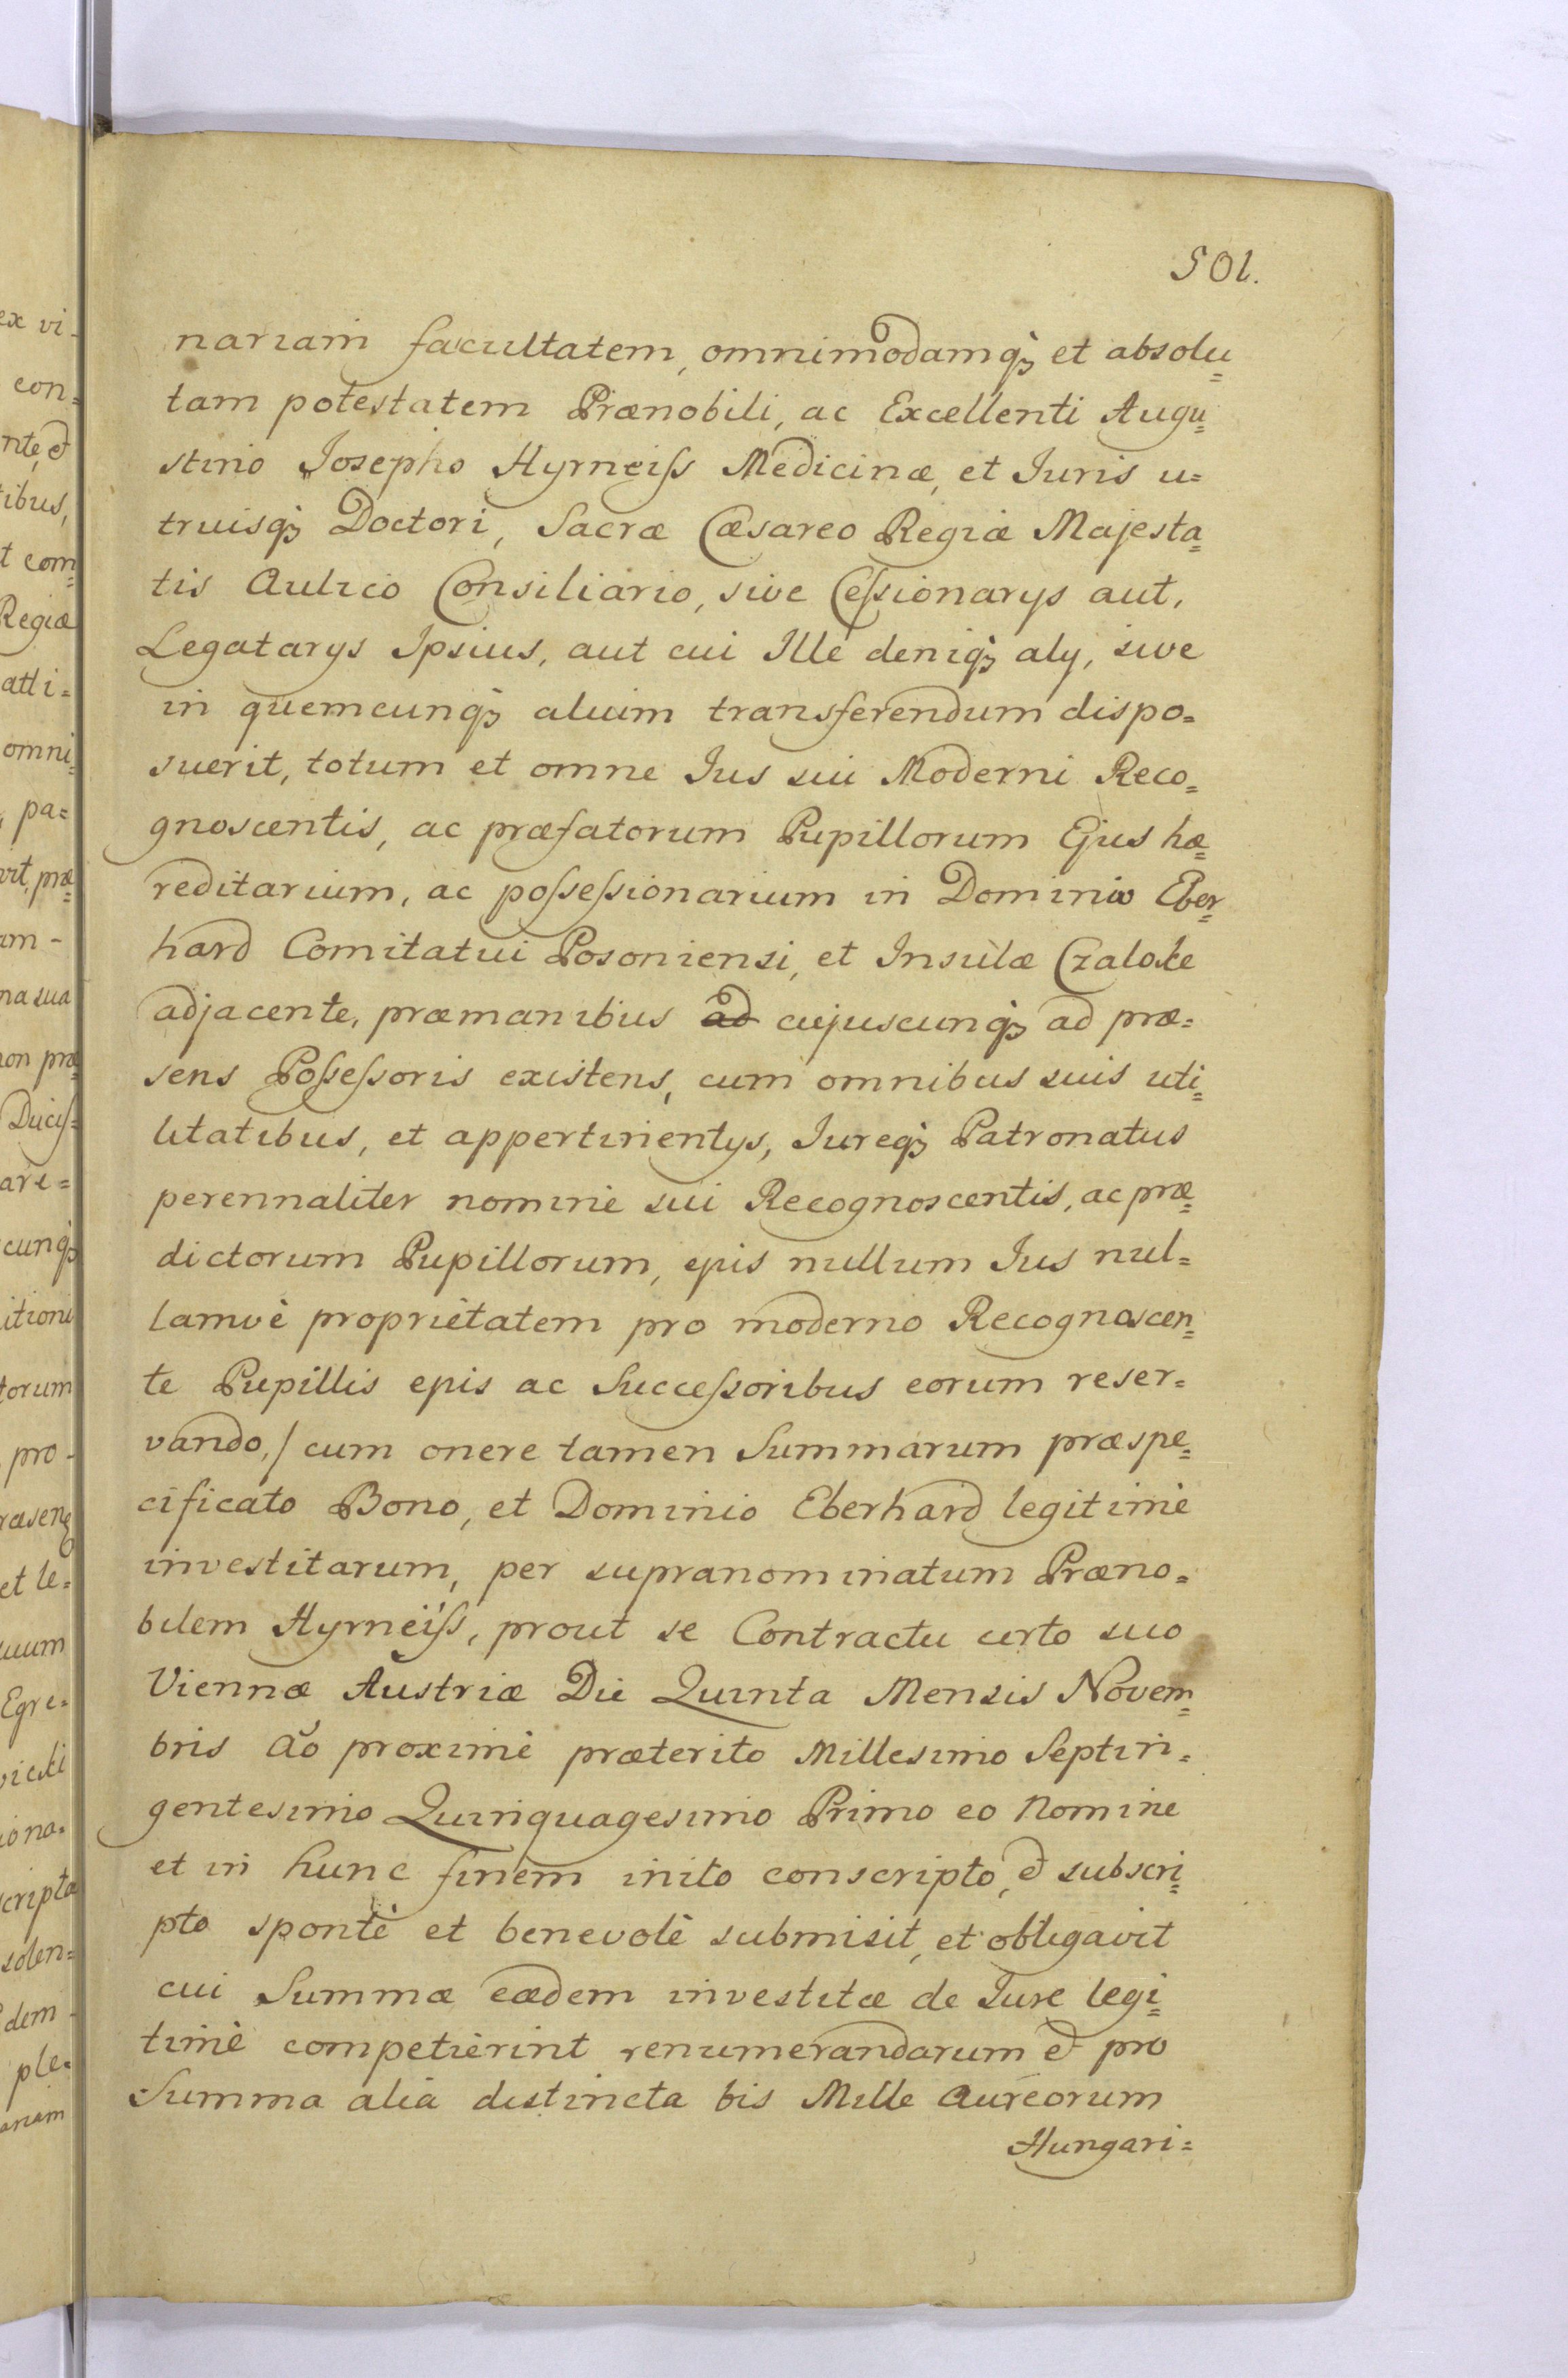 501.
nariam facultatem, omnimodamq3 et absolu=
tam potestatem Prænobili, ac Excellenti Augu=
stino Josepho Hyrneiss Medicinæ, et Juris u=
truisq3 Doctori, Sacræ Cæsareo Regiæ Majesta=
tis Aulico Consiliario, sive Cessionarys aut,
Legatarys Ipsius, aut cui Ille deniq3 aly, sive
in quemcunq3 alium transferendum dispo=
suerit, totum et omne Jus sui Moderni Reco=
gnoscentis, ac præfatorum Pupillorum Ejus hæ=
reditarium, ac possessionarium in Dominio Eber=
hard Comitatui Posoniensi, et Insulæ Czalokz
adjacente, præmanibus ad cujuscunq3 ad præ=
sens Possessoris existens, cum omnibus suis uti=
litatibus, et appertinentys, Jureq3 Patronatus
perennaliter nomine sui Recognoscentis, ac præ=
dictorum Pupillorum, ejus nullum Jus nul=
lamvè proprietatem pro moderno Recognoscen=
te Pupillis ejus ac Successoribus eorum reser=
vando,/ cum onere tamen Summarum præspe=
cificato Bono, et Dominio Eberhard legitimè
investitarum, per supranominatum Præno=
bilem Hyrneiss, prout se Contractu certo suo
Viennæ Austriæ Die Quinta Mensis Novem=
bris Aõ proximè præterito Millesimo Septin=
gentesimo Quinquagesimo Primo eo Nomine
et in hunc finem inito conscripto, et subscri=
pto spontè et benevolè submisit, et obligavit
cui Summæ eædem investitæ de Jure legi=
timè competierint renumerandarum et pro
Summa alia distincta bis Mille Aureorum
Hungari=
ex vi-
con=
nte, et
tibus,
t com=
Regiæ
atti=
omni=
, pa=
vit, præ=
am -
na sua
non præ=
Duciss=
are=
cunq3
itioni
torum
pro-
et le=
uum
Egre=
iona=
scripta
solen=
dem-
ple=
ariam